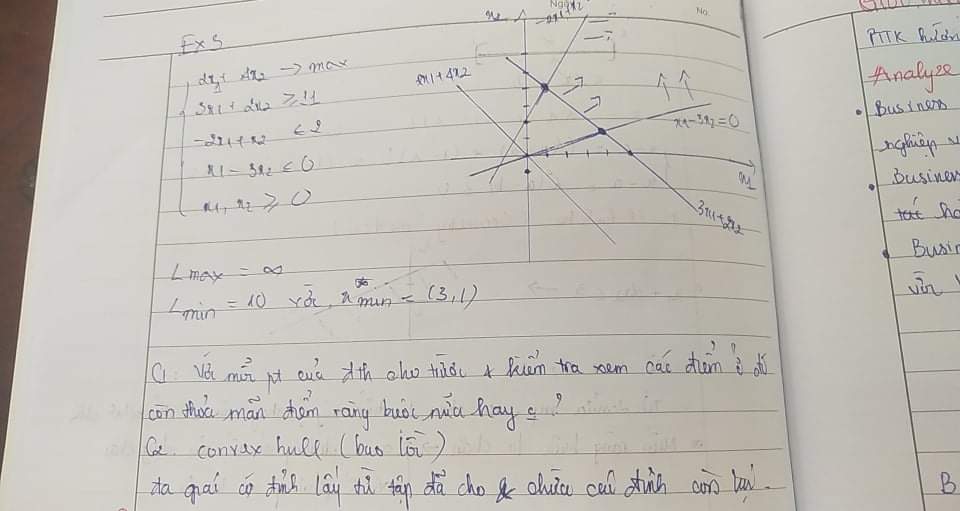 No.
Ex 5
2x1 + 4x2 → max
3x1 + 2x2 ≥ 11
-2x1 + x2 ≤ 2
x1 - 3x2 ≤ 0
x1, x2 ≥ 0
-2x1+x2
x1-3x2=0
x1
3x1+2x2
Lmax = ∞
Lmin = 10 với x*min = (3,1)
Với mỗi pt của đth cho trước kiểm tra xem các điểm ở đó
còn thỏa mãn điểm ràng buộc nữa hay
convex hull (bao lồi)
đa giác có đỉnh lấy từ tập đã cho & chứa các đỉnh còn lại.
PTTK
Analyze
• Business
nghiệp
• Business
• Busin
B